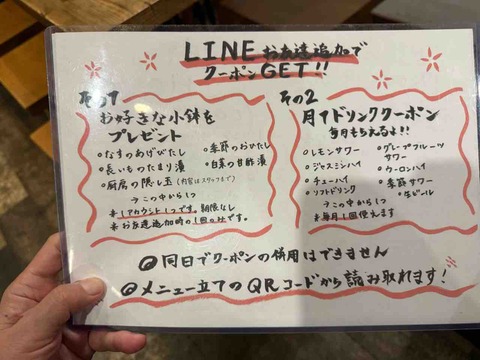 LINEお友達追加で
クーポンGET!!
その1
お好きな小鉢を
プレゼント
•なすのあげびたし
•季節のおひたし
•長いものたまり漬
•白菜の甘酢漬
•厨房の隠し玉(内容はスタッフまで)
→この中から1つ
※1アカウント1つです。期限なし
※お友達追加時の1回のみです。
その2
月1ドリンククーポン
毎月もらえるよ!!
•レモンサワー
•グレープフルーツサワー
•ジャスミンハイ
•ウーロンハイ
•チューハイ
•季節サワー
•ソフトドリンク
•生ビール
→この中から1つ
※毎月1回使えます
同日でクーポンの併用はできません
メニュー立てのQRコードから読み取れます!